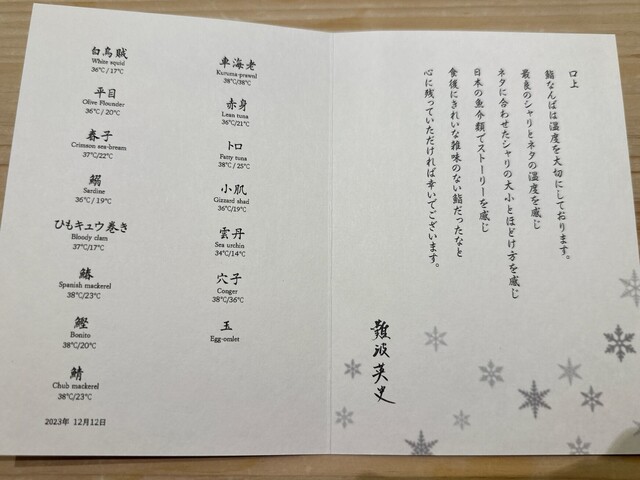 白烏賊
White squid
36℃/17℃
平目
Olive Flounder
36℃/20℃
春子
Crimson sea-bream
37℃/22℃
鰯
Sardine
36℃/19℃
ひもキュウ巻き
Bloody clam
37℃/17℃
鰆
Spanish mackerel
38℃/23℃
鰹
Bonito
38℃/20℃
鯖
Chub mackerel
38℃/23℃
2023年 12月12日
車海老
Kuruma-prawnl
38℃/38℃
赤身
Lean tuna
36℃/21℃
トロ
Fatty tuna
38℃/25℃
小肌
Gizzard shad
36℃/19℃
雲丹
Sea urchin
34℃/14℃
穴子
Conger
38℃/36℃
玉
Egg-omlet
口上
鮨なんばは温度を大切にしております。
最良のシャリとネタの温度を感じ
ネタに合わせたシャリの大小とほどけ方を感じ
日本の魚介類でストーリーを感じ
食後にきれいな雑味のない鮨だったなと
心に残っていただければ幸いでございます。
難波英史